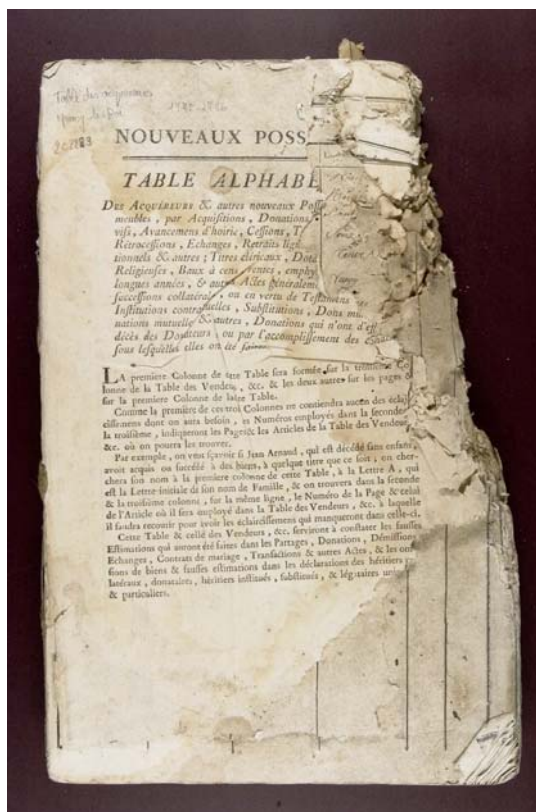 Table des acquereurs
1780-1786
2C2783
NOUVEAUX POSS
TABLE ALPHABE
DES ACQUÉREURS & autres nouveaux Poss
meubles, par Acquisitions, Donations,
vifs, Avancemens d'hoirie, Cessions, T
Rétrocessions, Echanges, Retraits lig
tionnels & autres; Titres cléricaux, Dota
Religieuses, Baux à cens, rentes, emphy
longues années, & autres Actes généralem
successions collatérales, ou en vertu de Testamens
Institutions contractuelles, Substitutions, Dons mu
nations mutuelles & autres, Donations qui n'ont d'ef
décès des Donateurs ou par l'accomplissement des
sous lesquelles elles on été faites.
LA premiere Colonne de cette Table sera formée sur la troisieme Co
lonne de la Table des Vendeurs, &c. & les deux autres sur les pages &
sur la premiere Colonne de ladite Table.
Comme la premiere de ces trois Colonnes ne contiendra aucun des éclair
cissemens dont on aura besoin, les Numéros employés dans la seconde
la troisieme, indiqueront les Pages & les Articles de la Table des Vendeurs
&c. où on pourra les trouver.
Par exemple, on veut sçavoir si Jean Arnaud, qui est décédé sans enfans,
avoit acquis ou succédé à des biens, à quelque titre que ce soit, on cher-
chera son nom à la premiere colonne de cette Table, à la Lettre A, qui
est la Lettre initiale de son nom de Famille, & on trouvera dans la seconde
& la troisieme colonne, sur la même ligne, le Numéro de la Page & celui
de l'Article où il sera employé dans la Table des Vendeurs, &c. à laquelle
il faudra recourir pour avoir les éclaircissemens qui manqueront dans celle-ci.
Cette Table & celle des Vendeurs, &c. serviront à constater les fausses
Estimations qui auront été faites dans les Partages, Donations, Démissions
Echanges, Contrats de mariage, Transactions & autres Actes, & les omis
sions de biens & fausses estimations dans les déclarations des héritiers
latéraux, donataires, héritiers institués, substitués, & légataires univ
& particuliers.